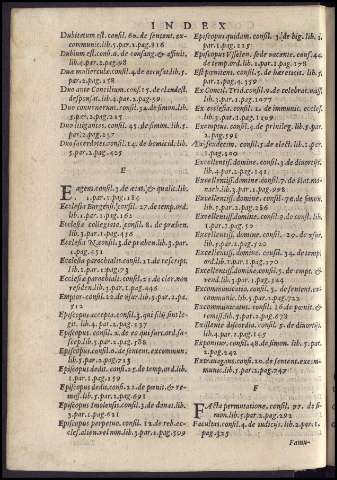 INDEX
Dubitatum est. consil. 60. de senten. ex-
communic. lib. 5. par. 1. pag. 816
Dubium est. cons. 6. de consang. & affinit.
lib. 4. par. 2. pag. 98
Duo mulierculæ. consil. 4. de accusat. lib. 5
par. 2. pag. 258
Duo ante Concilium. cons. 25. de clandest.
despansat. lib. 4. par. 2. pag. 59
Duo convenerunt. consil. 54. de simon. lib.
5. par. 2. pag. 225
Duo litigantes. consil. 45. de simon. lib. 5.
par. 2. pag. 257
Duo sacerdotes. consil. 14. de homicid. lib.
5. par. 2. pag. 425
E
Eagens. consil. 3. de ætat. & qualit. lib.
1. par. 1. pag. 184
Ecclesia Burgensis. consil. 27. de temp. ord.
lib. 1. par. 1. pag. 162
Ecclesia collegiata. consil. 8. de præben.
lib. 3. par. 1. pag. 456
Ecclesia N. consil. 3. de præben. lib. 3. par.
1. pag. 451
Ecclesia parochialis. consil. 21. de rescript.
lib. 1. par. 1. pag. 73
Ecclesia parochiali. consil. 21. de cler. non
residen. lib. 3. par. 1. pag. 446
Emptor. consil. 12. de usur. lib. 5. par. 2. pa.
312
Episcopus accepta. consil. 3. qui filij sint le-
git. lib. 4. par. 2. pag. 137
Episcopus. consil. 2. de eo qui fur. ord. su-
scep. lib. 5. par. 2. pag. 588
Episcopus. consil. 6. de senten. excommun.
lib. 5. par. 2. pag. 713
Episcopus dedit. cons. 25. de temp. ord. lib.
1. par. 1. pag. 159
Episcopus dedit. cons. 21. de pœnit. & re-
miss. lib. 5. par. 2. pag. 691
Episcopus Imolensis. consil. 3. de donat. lib.
3. par. 1. pag. 621
Episcopus perpetuo. consil. 12. de reb. ec-
cles. alien. vel non. lib. 3. par. 1. pag. 509
Episcopus quidam. consil. 3. de big. lib. 1.
par. 1. pag. 225
Episcopus Visilien. sede vacante. consil. 44.
de temp. ord. lib. 1. par. 1. pag. 178
Est pœnitens. consil. 5. de hæreticis. lib. 5.
par. 2. pag. 359
Ex Concil. Trid. consil. 9. de celebrat. miss.
lib. 3. par. 1. pag. 1077
Ex ecclesia. consil. 12. de immunit. ecclesi.
lib. 3. par. 1. pag. 1109
Exemptus. consil. 4. de privileg. lib. 5. par.
2. pag. 591
Ex fædecim. consil. 5. de elect. lib. 1. par.
1. pag. 100
Excellentiss. domine. consil. 3. de divortijs.
lib. 4. par. 2. pag. 141
Excellentiss. domine. consil. 7. de stat. mo-
nach. lib. 3. par. 1. pag. 998
Excellentiss. domine. consil. 78. de simon.
lib. 5. par. 2. pag. 286
Excellentiss. domine. cons. 6. de const. lib.
1. par. 1. pag. 50
Excellentiss. domine. consil. 29. de usur.
lib. 5. par. 2. pag. 320
Excellentiss. domine. consil. 34. de temp.
ord. lib. 1. par. 1. pag. 170
Excellentiss. domine. consil. 5. de empt. &
vend. lib. 3. par. 1. pag. 560
Excommunicatio. consil. 5. de senten. ex-
commun. lib. 5. par. 2. pag. 722
Excommunicatus. consil. 26. de pœnit. &
remiss. lib. 5. par. 2. pag. 678
Exilience discordia. consil. 5. de divortijs.
lib. 4. par. 2. pag. 165
Exponitur. consil. 48. de simon. lib. 5. par.
2. pag. 242
Extravagans. consil. 20. de senten. excom-
munic. lib. 5. par. 2. pag. 747
F
FActa permutatione. consil. 77. de si-
mon. lib. 5. par. 2. pag. 292
Facultas. consil. 4. de iudicijs. lib. 2. par. 1.
pag. 325
Famu-